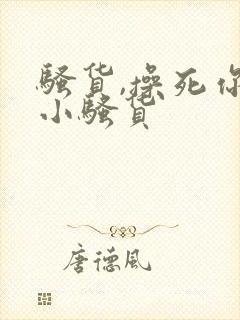 骚货,操死你
小骚货
唐德风